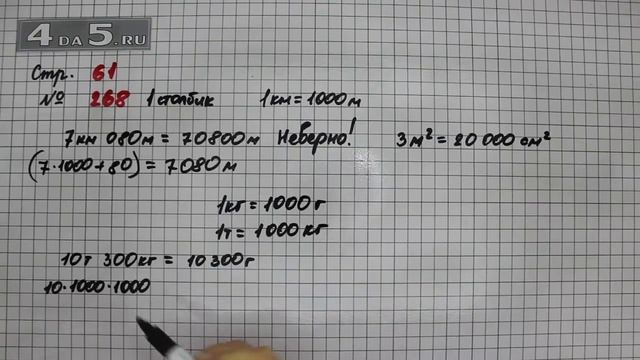 4DA5.RU
Стр. 61
№ 268 1 столбик 1км = 1000м
7км 080м = 70800м Неверно! 3м² = 20 000 см²
(7·1000+80) = 7080м
1кг = 1000г
1т = 1000кг
10т 300кг = 10300г
10·1000·1000